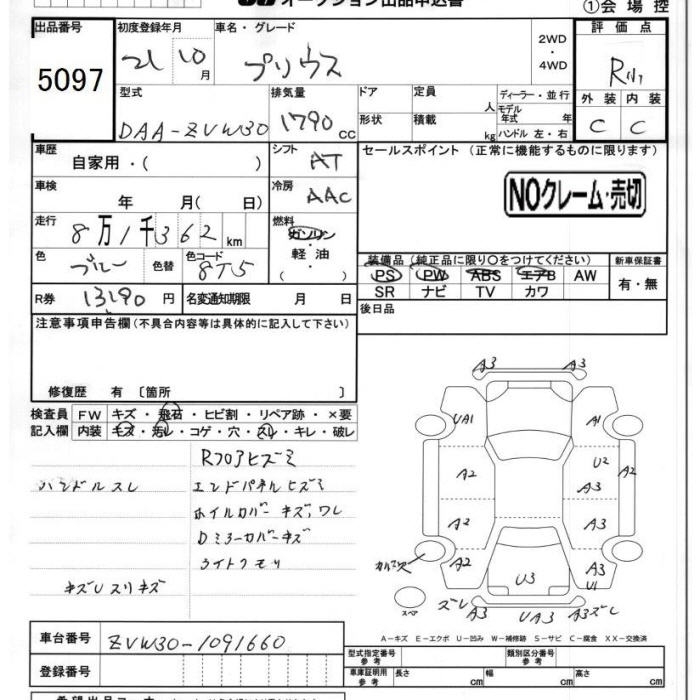 オークション出品申込書
①会場控
出品番号
5097
初度登録年月
21 10月
車名・グレード
プリウス
2WD
・
4WD
評価点
外装 内装
C C
型式
DAA-ZVW30
排気量
1790cc
ドア
定員 人
ディーラー・並行
モデル年式 年式
形状
積載 kg
ハンドル 左・右
車歴
自家用・( )
シフト
AT
セールスポイント (正常に機能するものに限ります)
NOクレーム・売切
車検
年 月( 日)
冷房
AAC
走行
8万1千362km
燃料
ガソリン
・
軽油
( )
色
ブルー
色替
色コード
8T5
装備品 (純正品に限り○をつけてください)
PS PW ABS エアB AW
SR ナビ TV カワ
新車保証書
有・無
R券
13190円
名変通知期限 月 日
後日品
注意事項申告欄 (不具合内容等は具体的に記入して下さい)
修復歴 有 〔箇所 〕
検査員記入欄
FW キズ・飛石・ヒビ割・リペア跡・×要
内装 キズ・汚レ・コゲ・穴・スレ・キレ・破レ
Rフロアヒズミ
ハンドルスレ
エンドパネルヒズミ
ホイルカバーキズ,ワレ
Dミラーカバーキズ
ライトクモリ
キズUスリキズ
A3 A3
UA1 A1
A2 U2 A2
A3
A2 A3
A2 A3
U1
U3
スペア
ズレ A3 UA3 A3ズレ
A-キズ E-エクボ U-凹み W-補修跡 S-サビ C-腐食 XX-交換済
車台番号
ZVW30-1091660
登録番号
型式指定番号 参考
類別区分番号 参考
車庫証明用 参考
長さ cm 幅 cm 高さ cm